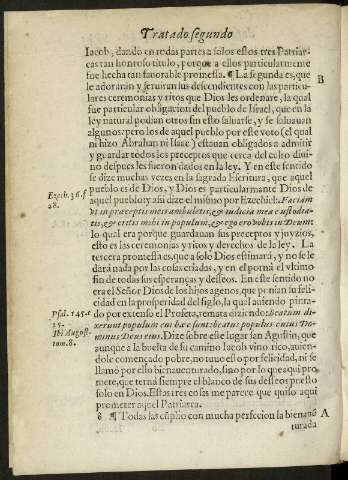 Tratado segundo
Iacob, dando en todas partes a solos estos tres Patriar-
cas tan honroso titulo, porque a ellos particularmente
fue hecha tan fauorable promessa. ¶ La segunda es, que
B
le adoraràn y seruiran sus descendientes con las particu-
lares ceremonias y ritos que Dios les ordenare, la qual
fue particular obligacion del pueblo de Israel, que en la
ley natural podian otros sin esto saluarse, y se saluauan
algunos: pero los de aquel pueblo por este voto (el qual
ni hizo Abrahan ni Isaac) estauan obligados a admitir
y guardar todos los preceptos que cerca del culto diui-
no despues les fueron dados en la ley. Y en este sentido
se dize muchas vezes en la sagrada Escritura, que aquel
pueblo es de Dios, y Dios es particularmente Dios de
Ezech. 36. f
28.
aquel pueblo: y assi dize el mismo por Ezechiel: Faciam
vt in præceptis meis ambuletis, & iudicia mea custodia-
tis, & eritis mihi in populum, & ego ero vobis in Deum:
lo qual era porque guardauan sus preceptos y juyzios,
esto es las ceremonias y ritos y derechos de la ley. La
tercera promessa es, que a solo Dios estimarà, y no se le
darà nada por las cosas criadas, y en el pornà el vltimo
fin de todas sus esperanças y desseos. En este sentido no
era el Señor Dios de los hijos agenos, que ponian su feli-
cidad en la prosperidad del siglo, la qual auiendo pinta-
Psal. 145.
15.
do por extenso el Profeta, remata diziendo: Beatum di-
xerunt populum cui hæc sunt: beatus populus cuius Do-
Ibi August.
tom. 8.
minus Deus eius. Dize sobre este lugar san Agustin, que
aunque a la buelta de su camino Iacob vino rico, auien-
dole començado pobre, no tuuo esto por felicidad, ni se
llamò por ello bienauenturado, sino por lo que aqui pro-
mete, que ternà siempre el blanco de sus desseos puesto
solo en Dios. Estas tres cosas me parece que quiso aqui
prometer aquel Patriarca.
8 ¶ Todas las cũplio con mucha perfecion la bienauē
A
turada